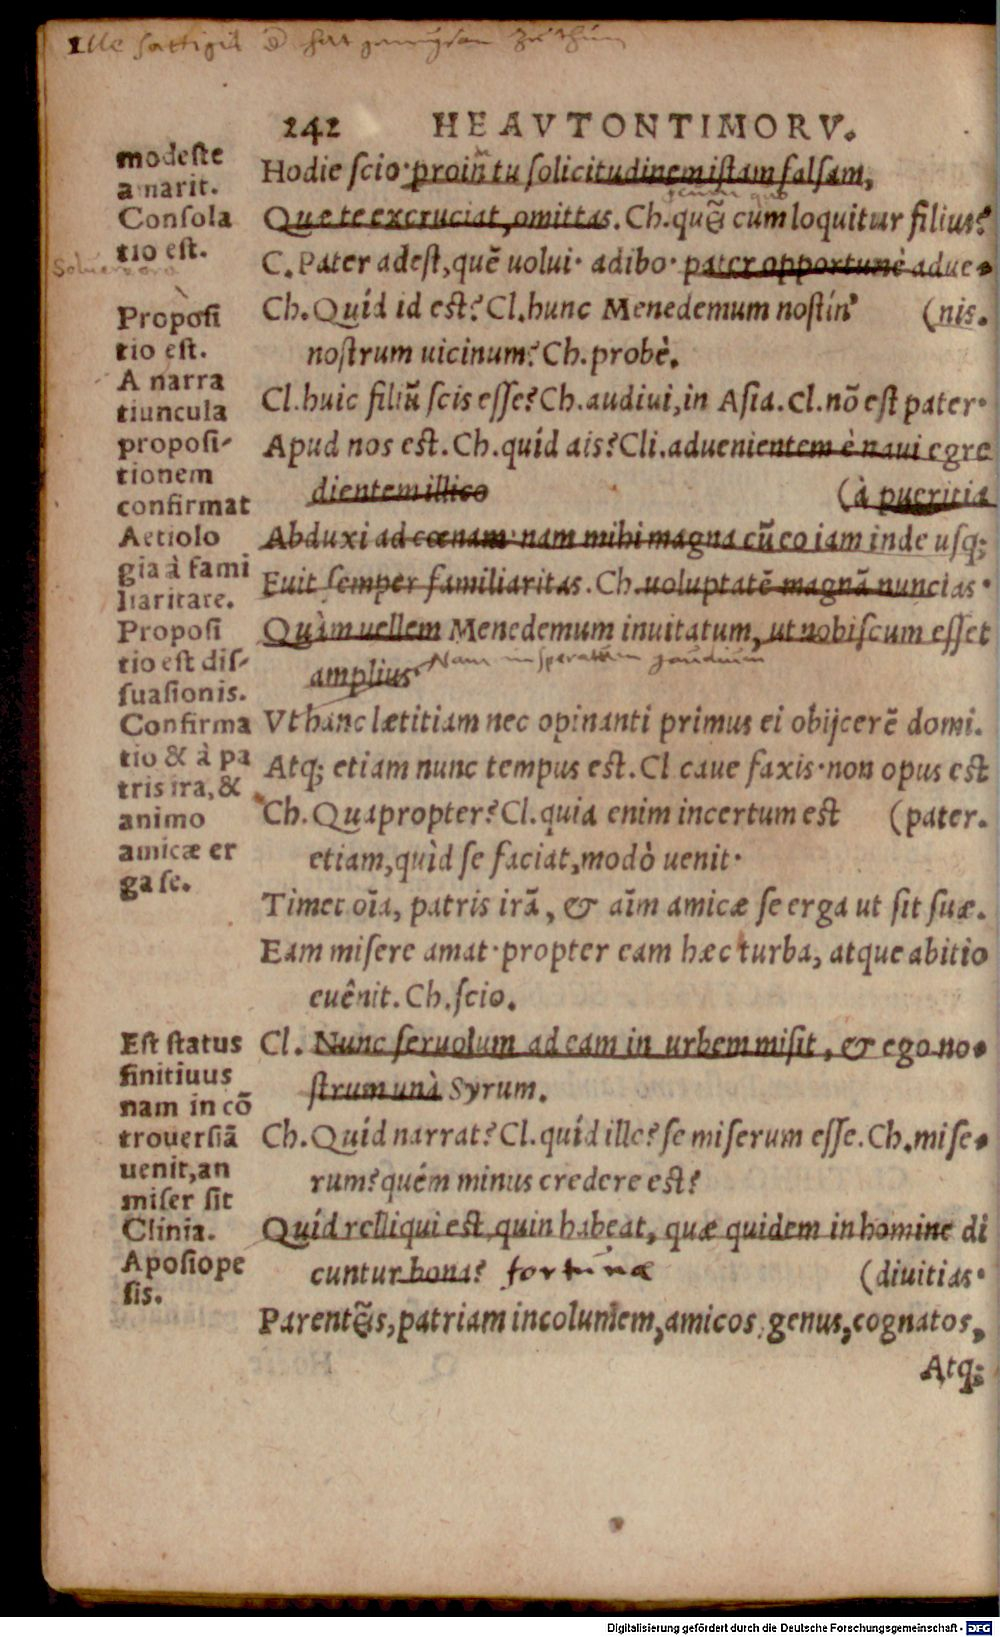 Ille sattigit
242 HEAVTONTIMORV.
modeste
amarit.
Consola
tio est.
Proposi
tio est.
A narra
tiuncula
proposi-
tionem
confirmat
Aetiolo
gia à fami
liaritate.
Proposi
tio est dis-
suasionis.
Confirma
tio & à pa
tris ira, &
animo
amicæ er
ga se.
Est status
finitiuus
nam in cõ
trouersiã
uenit, an
miser sit
Clinia.
Aposiope
sis.
Hodie scio· proin tu solicitudinem istam falsam,
Quæ te excruciat, omittas. Ch. quẽ cum loquitur filius?
C. Pater adest, quẽ uolui· adibo· pater opportunè adue-
Ch. Quid id est? Cl. hunc Menedemum nostin' (nis.
nostrum uicinum? Ch. probè.
Cl. huic filiũ scis esse? Ch. audiui, in Asia. Cl. nõ est pater·
Apud nos est. Ch. quid ais? Cli. aduenientem è naui egre
dientem illico (à pueritia
Abduxi ad cœnam· nam mihi magna cũ eo iam inde usq;
Fuit semper familiaritas. Ch. uoluptatẽ magnã nuncias·
Quàm uellem Menedemum inuitatum, ut nobiscum esset
amplius· Nam insperatum gaudium
Vt hanc lætitiam nec opinanti primus ei obijcerẽ domi.
Atq; etiam nunc tempus est. Cl caue faxis· non opus est
Ch. Quapropter? Cl. quia enim incertum est (pater.
etiam, quid se faciat, modò uenit·
Timet oĩa, patris irã, & aĩm amicæ se erga ut sit suæ.
Eam misere amat· propter eam hæc turba, atque abitio
euênit. Ch. scio.
Cl. Nunc seruolum ad eam in urbem misit, & ego no-
strum unà Syrum.
Ch. Quid narrat? Cl. quid ille? se miserum esse. Ch. mise-
rum? quém minus credere est?
Quid relliqui est, quin habeat, quæ quidem in homine di
cuntur bona? fortuna (diuitias·
Parentẽs, patriam incolumem, amicos, genus, cognatos,
Atq;
Digitalisierung gefördert durch die Deutsche Forschungsgemeinschaft - DFG